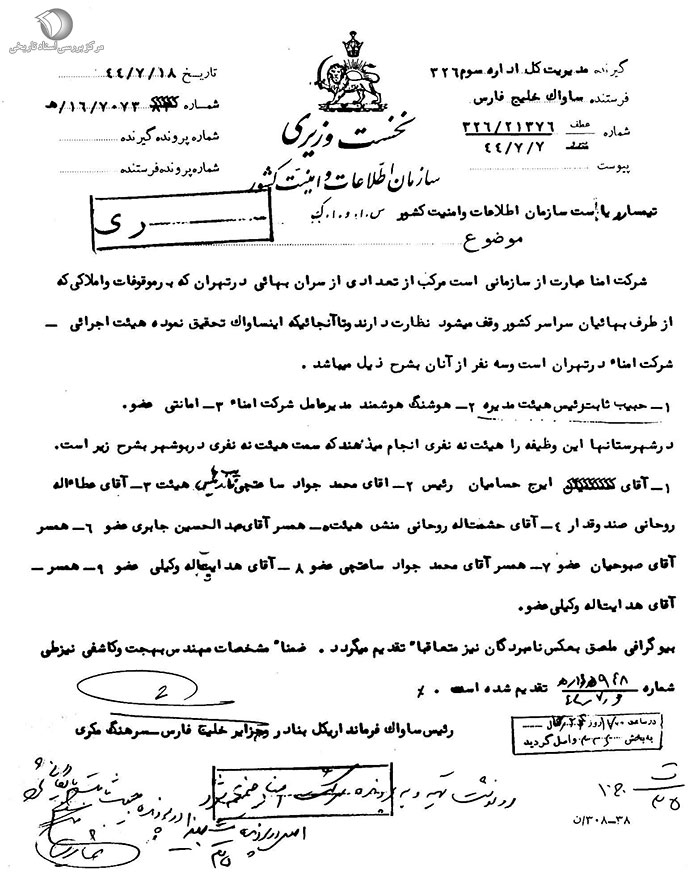 مرکز بررسی اسناد تاریخی
گیرنده مدیریت کل اداره سوم ۳۲۶
فرستنده ساواک خلیج فارس
شماره عطف ۳۲۶/۲۱۳۷۶
۴۴/۷/۷
پیوست
نخست وزیری
سازمان اطلاعات و امنیت کشور
تاریخ ۴۴/۷/۱۸
شماره ۱۶/۷۰۷۳/هـ
شماره پرونده گیرنده
شماره پرونده فرستنده
تیمسار ریاست سازمان اطلاعات وامنیت کشور
موضوع
شرکت امنا عبارت از سازمانی است مرکب از تعدادی از سران بهائی درتهران که برموقوفات واملاکی که
از طرف بهائیان سراسر کشور وقف میشود نظارت دارند وتاآنجائیکه اینساواک تحقیق نموده هیئت اجرائی –
شرکت امناء درتهران است وسه نفر از آنان بشرح ذیل میباشد .
۱– حبیب ثابت رئیس هیئت مدیره ۲– هوشنگ هوشمند مدیرعامل شرکت امناء ۳– امانتی عضو.
درشهرستانها این وظیفه را هیئت نه نفری انجام میدهندکه سمت هیئت نه نفری دربوشهر بشرح زیر است.
۱– آقای ایرج حسامیان رئیس ۲– اقای محمد جواد ساعتچی هیئت ۳– آقای عطاءاله
روحانی صندوقدار ۴– آقای حشمت‌اله روحانی منشی هیئت ۵– همسر آقای عبدالحسین جابری عضو ۶– همسر
آقای صبوحیان عضو ۷– همسر آقای محمد جواد ساعتچی عضو ۸– آقای هدایت‌اله وکیلی عضو ۹– همسر –
آقای هدایت‌اله وکیلی عضو.
بیوگرافی ملصق بعکس نامبردگان نیز متعاقبا" تقدیم میگردد . ضمنا" مشخصات مهندس بهجت وکاشفی نیزطی
شماره تقدیم شده است .
رئیس ساواک فرمانداریکل بنادر وجزایر خلیج فارس–سرهنگ مکری
در ساعت روز
به بخش واصل گردید
رونوشت تهیه و به پرونده شرکت امنا ضمیمه شود
۳۸–۳۰۸/ن